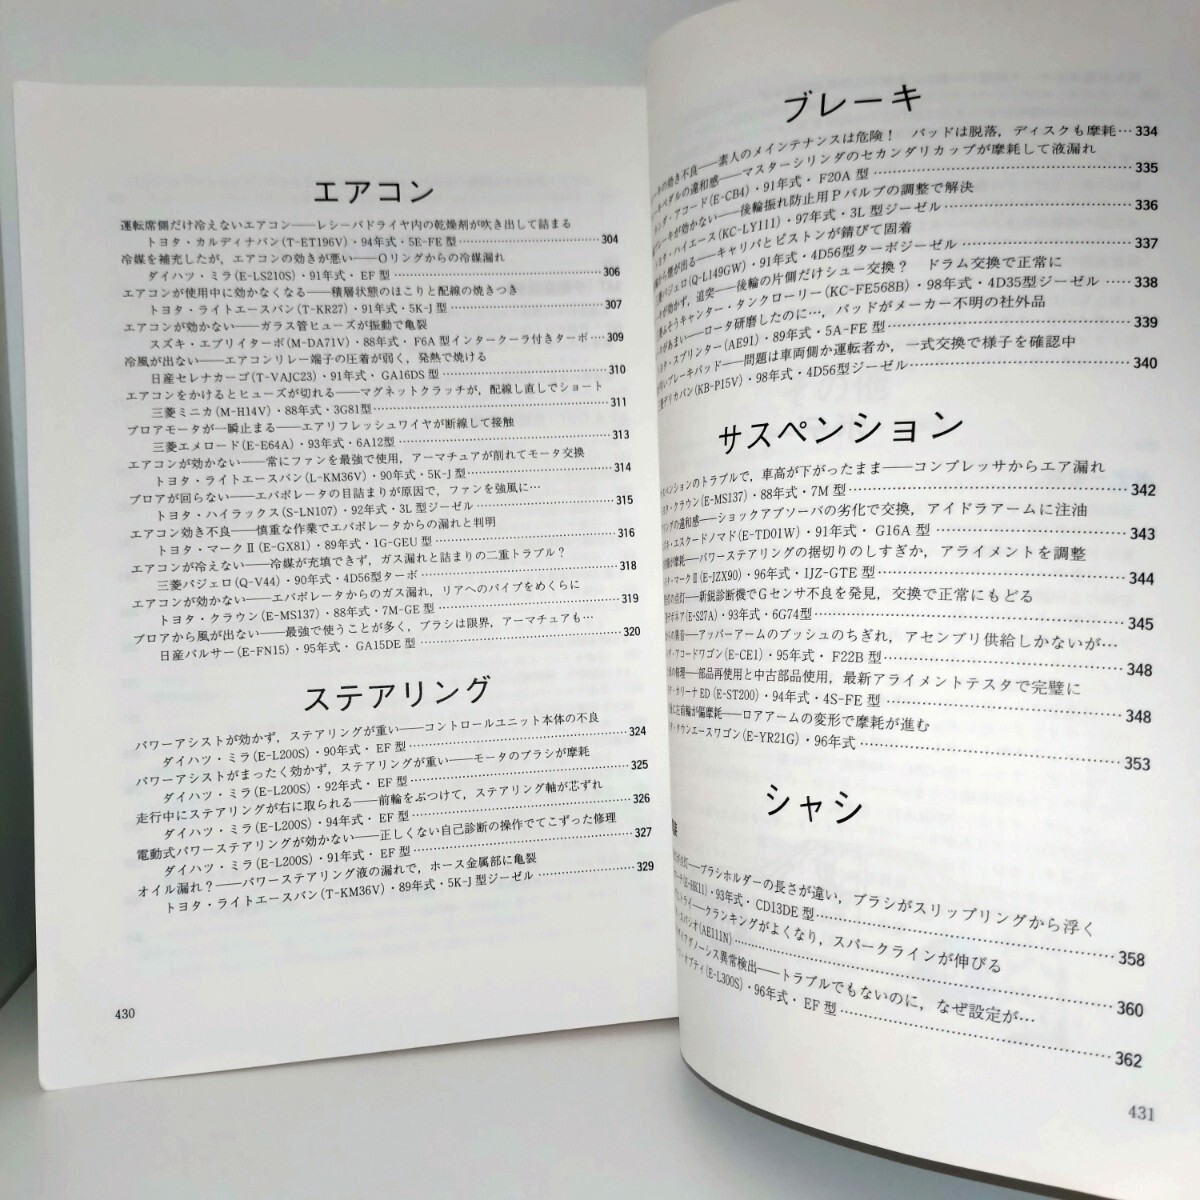 エアコン
運転席側だけ冷えないエアコン——レシーバドライヤ内の乾燥剤が吹き出して詰まる
トヨタ・カルディナバン(T-ET196V)・94年式・5E-FE型…304
冷媒を補充したが，エアコンの効きが悪い——Oリングからの冷媒漏れ
ダイハツ・ミラ(E-LS210S)・91年式・EF型…306
エアコンが使用中に効かなくなる——積層状態のほこりと配線の焼きつき
トヨタ・ライトエースバン(T-KR27)・91年式・5K-J型…307
エアコンが効かない——ガラス管ヒューズが振動で亀裂
スズキ・エブリイターボ(M-DA71V)・88年式・F6A型インタークーラ付きターボ…309
冷風が出ない——エアコンリレー端子の圧着が弱く，発熱で焼ける
日産セレナカーゴ(T-VAJC23)・91年式・GA16DS型…310
エアコンをかけるとヒューズが切れる——マグネットクラッチが，配線し直しでショート
三菱ミニカ(M-H14V)・88年式・3G81型…311
ブロアモータが一瞬止まる——エアリフレッシュワイヤが断線して接触
三菱エメロード(E-E64A)・93年式・6A12型…313
エアコンが効かない——常にファンを最強で使用，アーマチュアが削れてモータ交換
トヨタ・ライトエースバン(L-KM36V)・90年式・5K-J型…314
ブロアが回らない——エバポレータの目詰まりが原因で，ファンを強風に…
トヨタ・ハイラックス(S-LN107)・92年式・3L型ジーゼル…315
エアコン効き不良——慎重な作業でエバポレータからの漏れと判明
トヨタ・マークⅡ(E-GX81)・89年式・1G-GEU型…316
エアコンが冷えない——冷媒が充填できず，ガス漏れと詰まりの二重トラブル？
三菱パジェロ(Q-V44)・90年式・4D56型ターボ…318
エアコンが効かない——エバポレータからのガス漏れ，リアへのパイプをめくらに
トヨタ・クラウン(E-MS137)・88年式・7M-GE型…319
ブロアから風が出ない——最強で使うことが多く，ブラシは限界，アーマチュアも…
日産パルサー(E-FN15)・95年式・GA15DE型…320
ステアリング
パワーアシストが効かず，ステアリングが重い——コントロールユニット本体の不良
ダイハツ・ミラ(E-L200S)・90年式・EF型…324
パワーアシストがまったく効かず，ステアリングが重い——モータのブラシが摩耗
ダイハツ・ミラ(E-L200S)・92年式・EF型…325
走行中にステアリングが右に取られる——前輪をぶつけて，ステアリング軸が芯ずれ
ダイハツ・ミラ(E-L200S)・94年式・EF型…326
電動式パワーステアリングが効かない——正しくない自己診断の操作でてこずった修理
ダイハツ・ミラ(E-L200S)・91年式・EF型…327
オイル漏れ？——パワーステアリング液の漏れで，ホース金属部に亀裂
トヨタ・ライトエースバン(T-KM36V)・89年式・5K-J型ジーゼル…329
430
ブレーキ
の効き不良——素人のメインテナンスは危険！ パッドは脱落，ディスクも摩耗…334
ペダルの違和感——マスターシリンダのセカンダリカップが摩耗して液漏れ
ダ・アコード(E-CB4)・91年式・F20A型…335
ブレーキが効かない——後輪振れ防止用Pバルブの調整で解決
・ハイエース(KC-LY111)・97年式・3L型ジーゼル…336
煙が出る——キャリパとピストンが錆びて固着
パジェロ(Q-L149GW)・91年式・4D56型ターボジーゼル…337
効かず，追突——後輪の片側だけシュー交換？ ドラム交換で正常に
ふそうキャンター・タンクローリー(KC-FE568B)・98年式・4D35型ジーゼル…338
あまい——ロータ研磨したのに…，パッドがメーカー不明の社外品
・スプリンター(AE91)・89年式・5A-FE型…339
いブレーキパッド——問題は車両側か運転者か，一式交換で様子を確認中
デリカバン(KB-P15V)・98年式・4D56型ジーゼル…340
サスペンション
スペンションのトラブルで，車高が下がったまま——コンプレッサからエア漏れ
タ・クラウン(E-MS137)・88年式・7M型…342
リングの違和感——ショックアブソーバの劣化で交換，アイドラアームに注油
キ・エスクードノマド(E-TD01W)・91年式・G16A型…343
摩耗——パワーステアリングの据切りのしすぎか，アライメントを調整
・マークⅡ(E-JZX90)・96年式・1JZ-GTE型…344
の点灯——新鋭診断機でGセンサ不良を発見，交換で正常にもどる
ギア(E-S27A)・93年式・6G74型…345
らの異音——アッパーアームのブッシュのちぎれ，アセンブリ供給しかないが…
・アコードワゴン(E-CE1)・95年式・F22B型…348
の修理——部品再使用と中古部品使用，最新アライメントテスタで完璧に
・カリーナED(E-ST200)・94年式・4S-FE型…348
左前輪が偏摩耗——ロアアームの変形で摩耗が進む
・タウンエースワゴン(E-YR21G)・96年式…353
シャシ
灯——ブラシホルダーの長さが違い，ブラシがスリップリングから浮く
93年式・CD13DE型…358
トライ——クランキングがよくなり，スパークラインが伸びる
・スパシオ(AE111N)…360
ダイアグノーシス異常検出——トラブルでもないのに，なぜ設定が…
・オプティ(E-L300S)・96年式・EF型…362
431